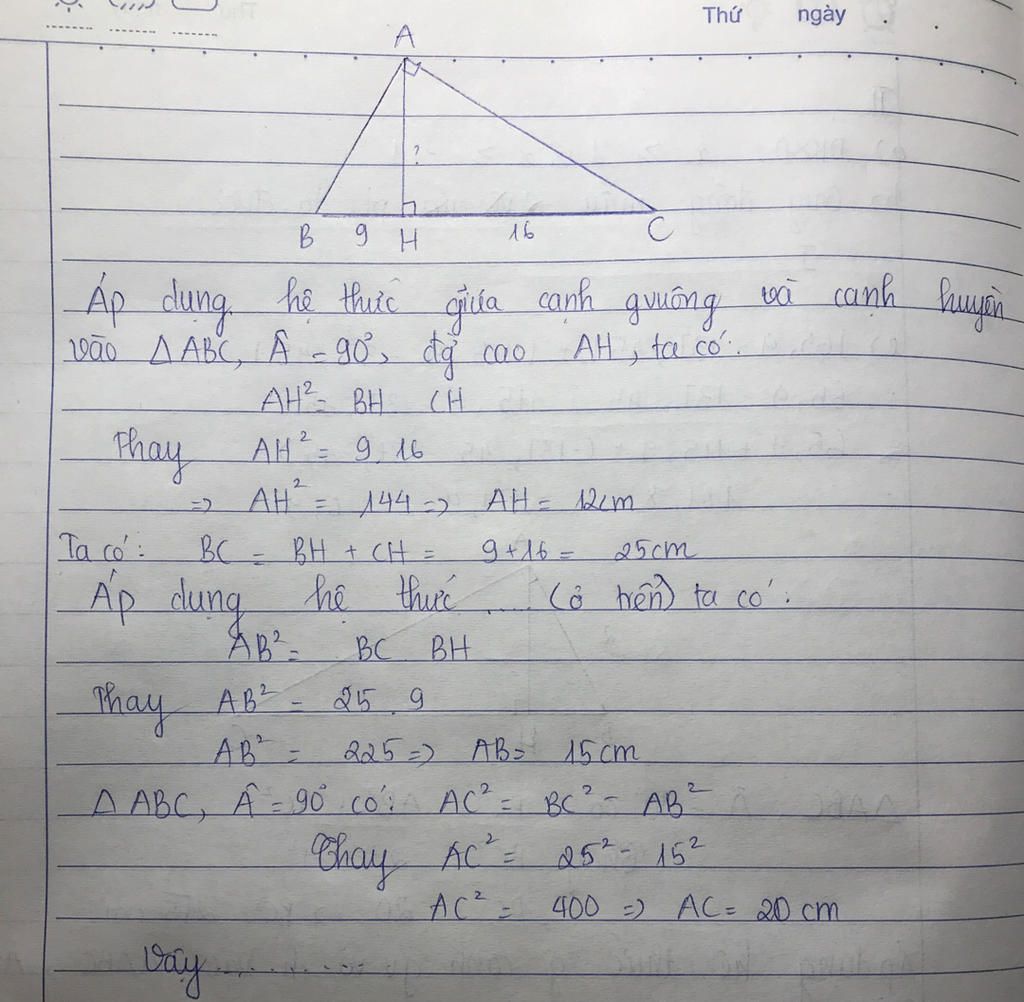 Thứ ngày . .
A
?
B 9 H 16 C
Áp dụng hệ thức giữa cạnh gvuông và cạnh huyền
vào △ABC, Â = 90°, đg cao AH, ta có:
AH² = BH CH
Thay AH² = 9.16
=> AH² = 144 => AH = 12cm
Ta có: BC = BH + CH = 9+16 = 25cm
Áp dụng hệ thức .... (ở trên) ta có:
AB² = BC BH
Thay AB² = 25.9
AB² = 225 => AB = 15cm
△ABC, Â = 90° có: AC² = BC² - AB²
Thay AC² = 25² - 15²
AC² = 400 => AC = 20 cm
Vậy ..........